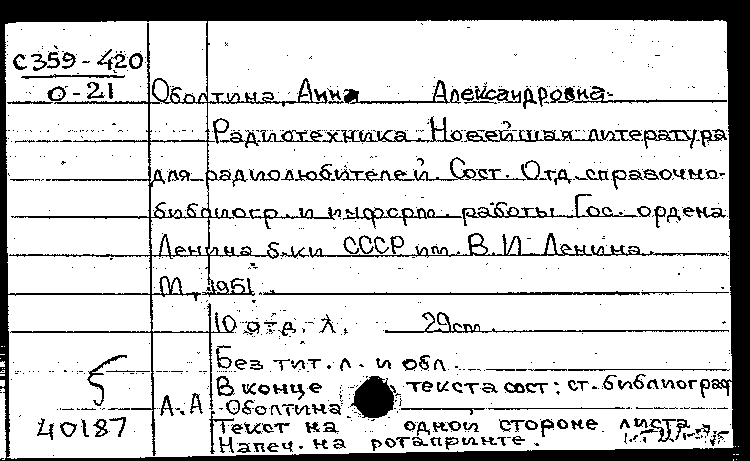 С359-420
О-21
Оболтина, Анна Александровна-
Радиотехника. Новейшая литература
для радиолюбителей. Сост. Отд. справочно-
библиогр. и информ. работы Гос. ордена
Ленина б-ки СССР им. В. И. Ленина.
М., 1951.
10 отд. л. 29см.
Без тит. л. и обл.
В конце текста сост: ст. библиограф
А.А. Оболтина
Текст на одной стороне листа.
Напеч. на ротапринте.
40187